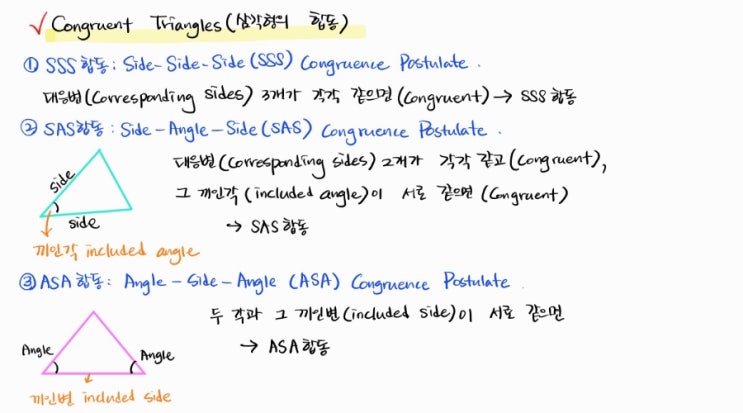 ✓ Congruent Triangles (삼각형의 합동)
① SSS합동: Side-Side-Side (SSS) Congruence Postulate.
대응변(Corresponding sides) 3개가 각각 같으면(Congruent) → SSS 합동
② SAS합동: Side-Angle-Side (SAS) Congruence Postulate.
대응변(Corresponding sides) 2개가 각각 같고(Congruent),
그 끼인각(included angle)이 서로 같으면(Congruent)
→ SAS합동
side
side
끼인각 included angle
③ ASA합동: Angle-Side-Angle (ASA) Congruence Postulate.
두 각과 그 끼인변(included side)이 서로 같으면
→ ASA합동
Angle
Angle
끼인변 included side